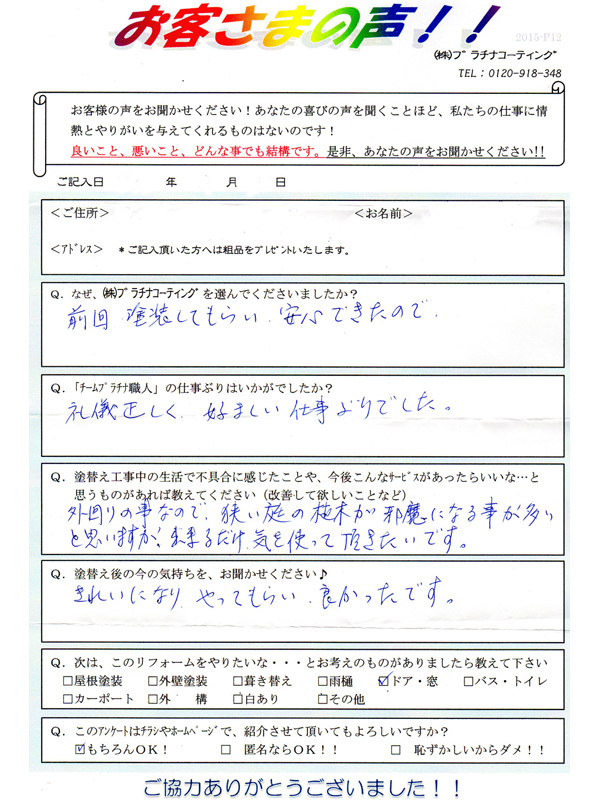 お客さまの声！！
2015-P12
㈱ﾌﾟラチナコーティングﾞ
TEL：0120-918-348
お客様の声をお聞かせください！あなたの喜びの声を聞くことほど、私たちの仕事に情
熱とやりがいを与えてくれるものはないのです！
良いこと、悪いこと、どんな事でも結構です。是非、あなたの声をお聞かせください!!
ご記入日　年　月　日
＜ご住所＞　＜お名前＞
＜ｱﾄﾞﾚｽ＞　＊ご記入頂いた方へは粗品をﾌﾟﾚｾﾞﾝﾄいたします。
Q．なぜ、㈱ﾌﾟﾗﾁﾅｺｰﾃｨﾝｸﾞを選んでくださいましたか？
前回 塗装してもらい、安心できたので、
Q．「ﾁｰﾑﾌﾟﾗﾁﾅ職人」の仕事ぶりはいかがでしたか？
礼儀正しく、好ましい仕事ぶりでした。
Q．塗替え工事中の生活で不具合に感じたことや、今後こんなｻｰﾋﾞｽがあったらいいな…と
思うものがあれば教えてください（改善して欲しいことなど）
外回りの事なので、狭い庭の植木が邪魔になる事が多い
と思いますが、出来るだけ気を使って頂きたいです。
Q．塗替え後の今の気持ちを、お聞かせください♪
きれいになり、やってもらい、良かったです。
Q．次は、このリフォームをやりたいな・・・とお考えのものがありましたら教えて下さい
□屋根塗装　□外壁塗装　□葺き替え　□雨樋　☑ドア・窓　□バス・トイレ
□カーポート　□外　構　□白あり　□その他
Q．このｱﾝｹｰﾄはﾁﾗｼやﾎｰﾑﾍﾟｰｼﾞで、紹介させて頂いてもよろしいですか？
☑もちろんOK！　□　匿名ならOK！！　□　恥ずかしいからダメ！！
ご協力ありがとうございました！！